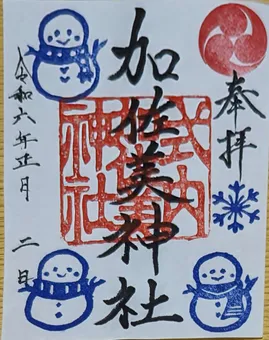 奉拝
加佐美神社
式内
神社
令和六年正月二日